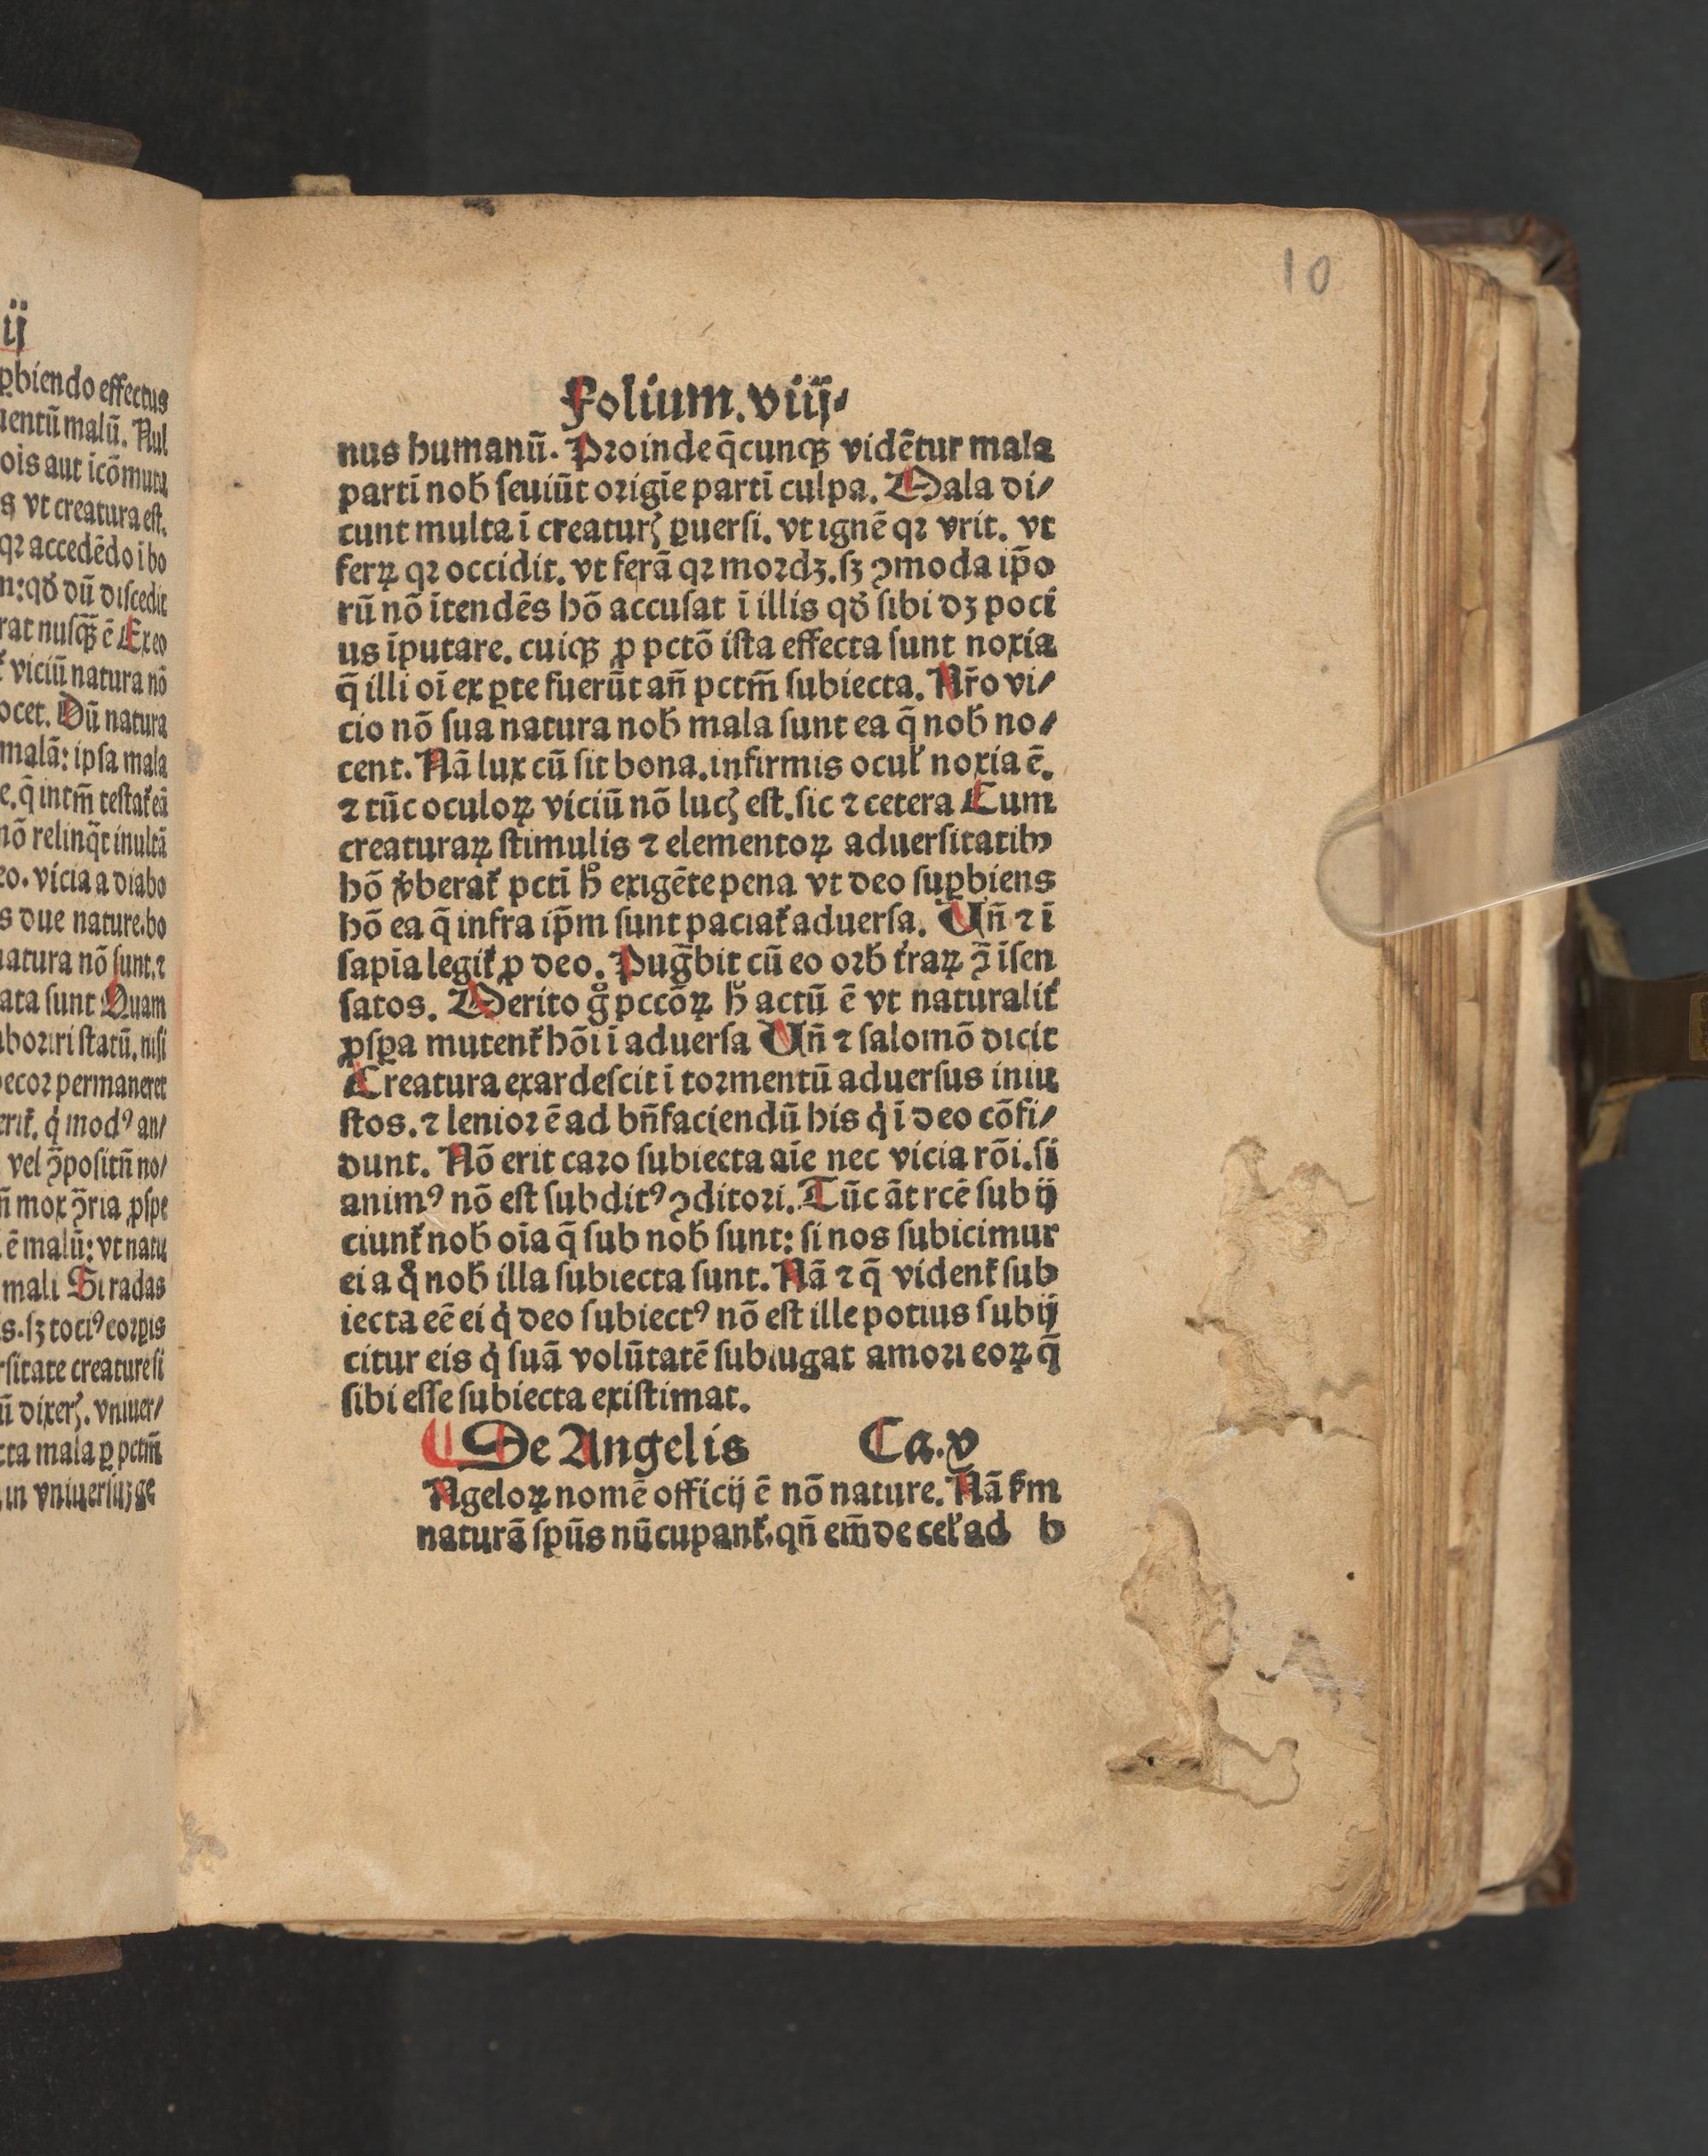 ij
ꝑbiendo effectus
uentū malū. Nul
ois aut icōmuta
s vt creatura est.
qꝛ accedēdo i bo
n: qđ dū discedit
rat nusqꝫ ē Exeo
viciū natura nō
ocet. Dū natura
malā: ipsa mala
e. q̄ intm̄ testať eā
nō relinq̄t inultā
eo. vicia a diabo
s due nature. bo
natura nō sunt. ⁊
ata sunt Quam
aboriri statū. nisi
ecoꝛ permaneret
vel ꝯpositū no/
mali Si radas
rsitate creature si
cta mala ꝑ pctm̄
10
Folium. viij.
nus humanū. Proinde q̄cunqꝫ vidētur mala
partī nob̄ ſeuiūt oꝛigīe partī culpa. Mala di/
cunt multa ī creaturꝭ ꝑuerſi. vt ignē qꝛ vrit. vt
ferꝝ qꝛ occidit. vt ferā qꝛ moꝛdꝫ. ſꝫ ꝯmoda ip̄o
rū nō ītendēs hō accuſat ī illis qđ ſibi dꝫ poci
us īputare. cuiqꝫ ꝓ pctō iſta effecta ſunt noxia
q̄ illi oī ex ꝑte fuerūt añ pctm̄ ſubiecta. Nr̄o vi/
cio nō ſua natura nob̄ mala ſunt ea q̄ nob̄ no/
cent. Nā lux cū ſit bona. infirmis ocuľ noxia ē.
⁊ tūc oculoꝝ viciū nō lucꝭ eſt. ſic ⁊ cetera Cum
creaturaꝝ ſtimulis ⁊ elementoꝝ aduerſitatibꝰ
hō v̓berať pctī h̄ exigēte pena vt deo ſuꝑbiens
hō ea q̄ infra ip̄m ſunt paciať aduerſa. Uñ ⁊ ī
ſapīa legiť ꝓ deo. Pug̃bit cū eo oꝛb̄ ťraꝝ ꝯ̄ īſen
ſatos. Merito gͦ pccōꝝ h̄ actū ē vt naturaliť
ꝓſꝑa mutenť hōi ī aduerſa Uñ ⁊ ſalomō dicit
Creatura exardeſcit ī toꝛmentū aduerſus iniu
ſtos. ⁊ lenioꝛ ē ad bñfaciendū his q̇ ī deo cōfi/
dunt. Nō erit caro ſubiecta aīe nec vicia rōi. ſi
animꝰ nō eſt ſubditꝰ ꝯditoꝛi. Tūc āt rcē ſubij
ciunť nob̄ oīa q̄ ſub nob̄ ſunt: ſi nos ſubicimur
ei a qͦ nob̄ illa ſubiecta ſunt. Nā ⁊ q̄ videnť ſub
iecta eē ei q̇ deo ſubiectꝰ nō eſt ille potius ſubij
citur eis q̇ ſuā volūtatē ſubiugat amoꝛi eoꝝ q̄
ſibi eſſe ſubiecta exiſtimat.
¶ De Angelis Ca. v
Ngeloꝝ nomē officij ē nō nature. Nā ẜm
naturā ſpūs nūcupanť. qñ em̄ de ceľ ad b